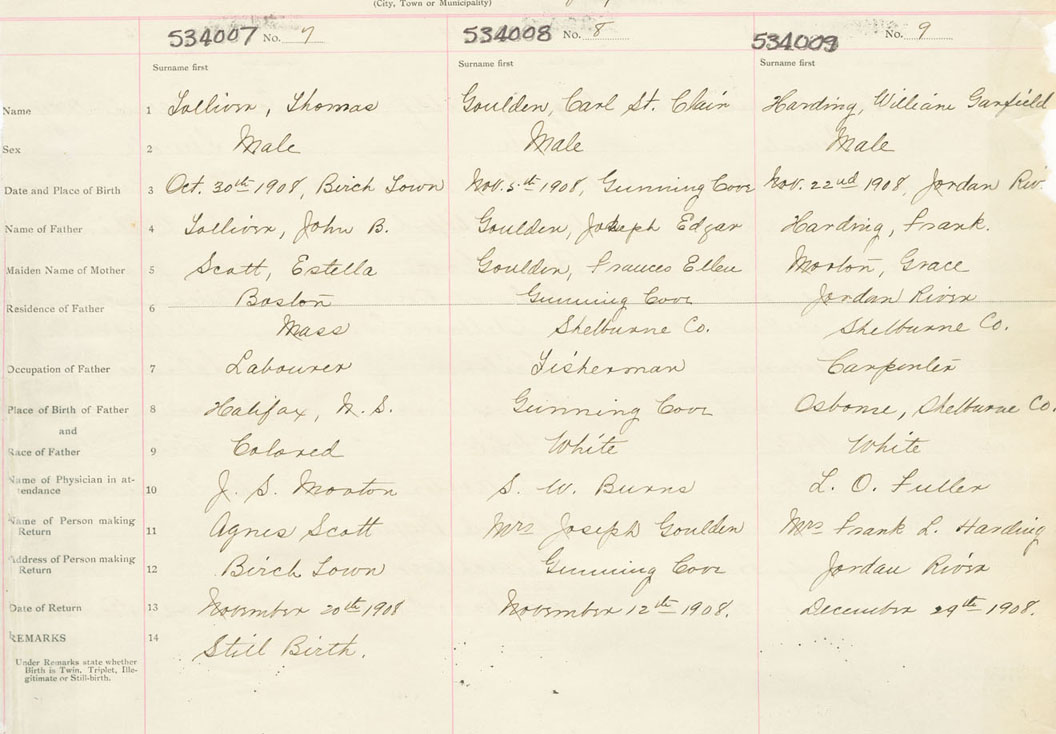 (City, Town or Municipality)
534007 No. 7 534008 No. 8 534009 No. 9
Surname first Surname first Surname first
Name 1 Tolliver, Thomas Goulden, Carl St. Clair Harding, William Garfield
Sex 2 Male Male Male
Date and Place of Birth 3 Oct. 30th 1908, Birch Town Nov. 5th 1908, Gunning Cove Nov. 22nd 1908, Jordan Riv
Name of Father 4 Tolliver, John B. Goulden, Joseph Edgar Harding, Frank.
Maiden Name of Mother 5 Scott, Estella Goulden, Frances Ellen Morton, Grace
Residence of Father 6 Boston Gunning Cove Jordan River
Mass Shelburne Co. Shelburne Co.
Occupation of Father 7 Labourer Fisherman Carpenter
Place of Birth of Father 8 Halifax, N. S. Gunning Cove Osborne, Shelburne Co.
and
Race of Father 9 Colored White White
Name of Physician in at-
tendance 10 J. S. Morton S. W. Burns L. O. Fuller
Name of Person making
Return 11 Agnes Scott Mrs Joseph Goulden Mrs Frank L. Harding
Address of Person making
Return 12 Birch Town Gunning Cove Jordan River
Date of Return 13 November 20th 1908 November 12th 1908. December 29th 1908.
REMARKS 14 Still Birth.
Under Remarks state whether
Birth is Twin, Triplet, Ille-
gitimate or Still-birth.